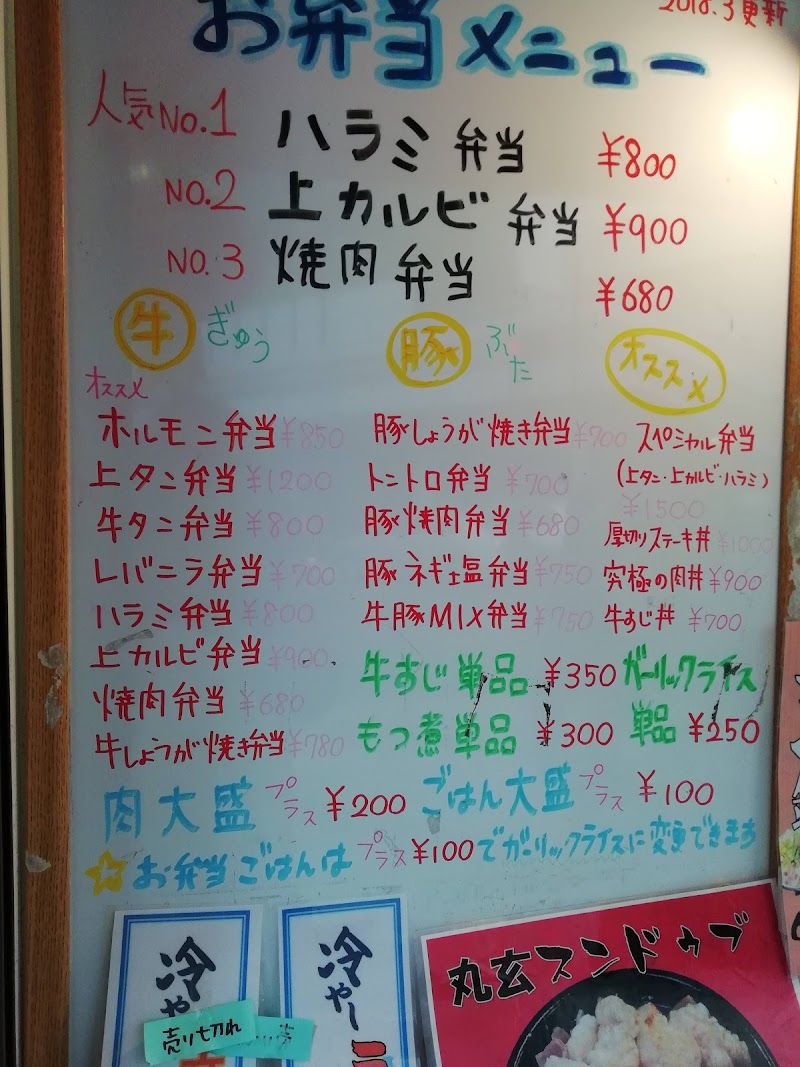 2018.3更新
お弁当メニュー
人気No.1 ハラミ弁当 ¥800
NO.2 上カルビ弁当 ¥900
NO.3 焼肉弁当 ¥680
牛 ぎゅう
オススメ
ホルモン弁当 ¥850
上タン弁当 ¥1200
牛タン弁当 ¥800
レバニラ弁当 ¥700
ハラミ弁当 ¥800
上カルビ弁当 ¥900
焼肉弁当 ¥680
牛しょうが焼き弁当 ¥780
豚 ぶた
豚しょうが焼き弁当 ¥700
トントロ弁当 ¥700
豚焼肉弁当 ¥680
豚ネギ塩弁当 ¥750
牛豚MIX弁当 ¥750
オススメ
スペシャル弁当
(上タン・上カルビ・ハラミ)
¥1500
厚切りステーキ丼 ¥1000
究極の肉丼 ¥900
牛すじ丼 ¥700
牛すじ単品 ¥350
もつ煮単品 ¥300
ガーリックライス
単品 ¥250
肉大盛 プラス ¥200 ごはん大盛 プラス ¥100
☆お弁当ごはんは プラス ¥100でガーリックライスに変更できます
冷や
売り切れ
冷やし
丸玄スンドゥブ